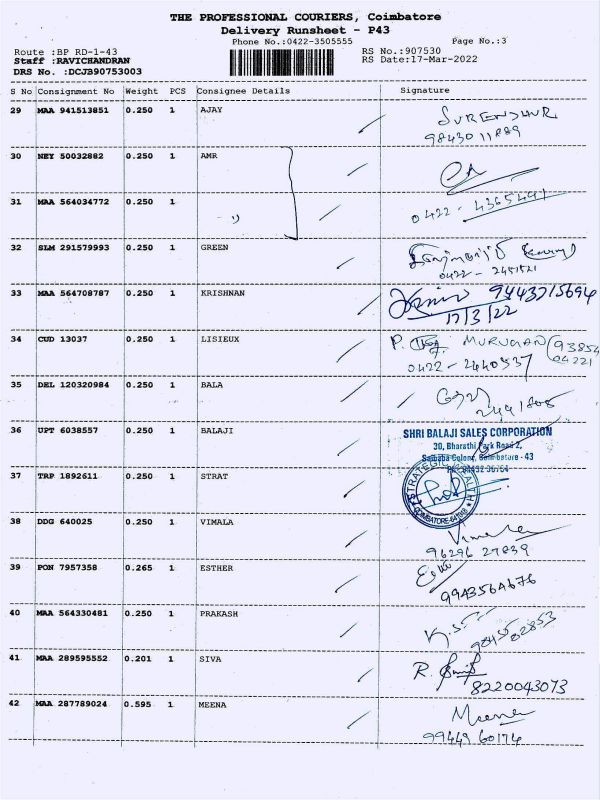 THE PROFESSIONAL COURIERS, Coimbatore
Delivery Runsheet - P43
Phone No.:0422-3505555 Page No.:3
Route :BP RD-1-43 RS No.:907530
Staff :RAVICHANDRAN RS Date:17-Mar-2022
DRS No. :DCJB90753003
S No Consignment No Weight PCS Consignee Details Signature
29 MAA 941513851 0.250 1 AJAY
9843011889
30 NEY 50032882 0.250 1 AMR
31 MAA 564034772 0.250 1 0422 - 4365491
32 SLM 291579993 0.250 1 GREEN
0422 - 2451521
33 MAA 564708787 0.250 1 KRISHNAN 9443715694
17/3/22
34 CUD 13037 0.250 1 LISIEUX P. MURUGAN
0422 - 2440537
35 DEL 120320984 0.250 1 BALA
36 UPT 6038557 0.250 1 BALAJI SHRI BALAJI SALES CORPORATION
30, Bharathi Park Road 2,
Saibaba Colony, Coimbatore - 43
37 TRP 1892611 0.250 1 STRAT STRATEGIC HEALTH
COIMBATORE
38 DDG 640025 0.250 1 VIMALA Vimala
96296 27839
39 PON 7957358 0.265 1 ESTHER
9943564676
40 MAA 564330481 0.250 1 PRAKASH
41 MAA 289595552 0.201 1 SIVA R.
8220043073
42 MAA 287789024 0.595 1 MEENA Meena
99449 60174